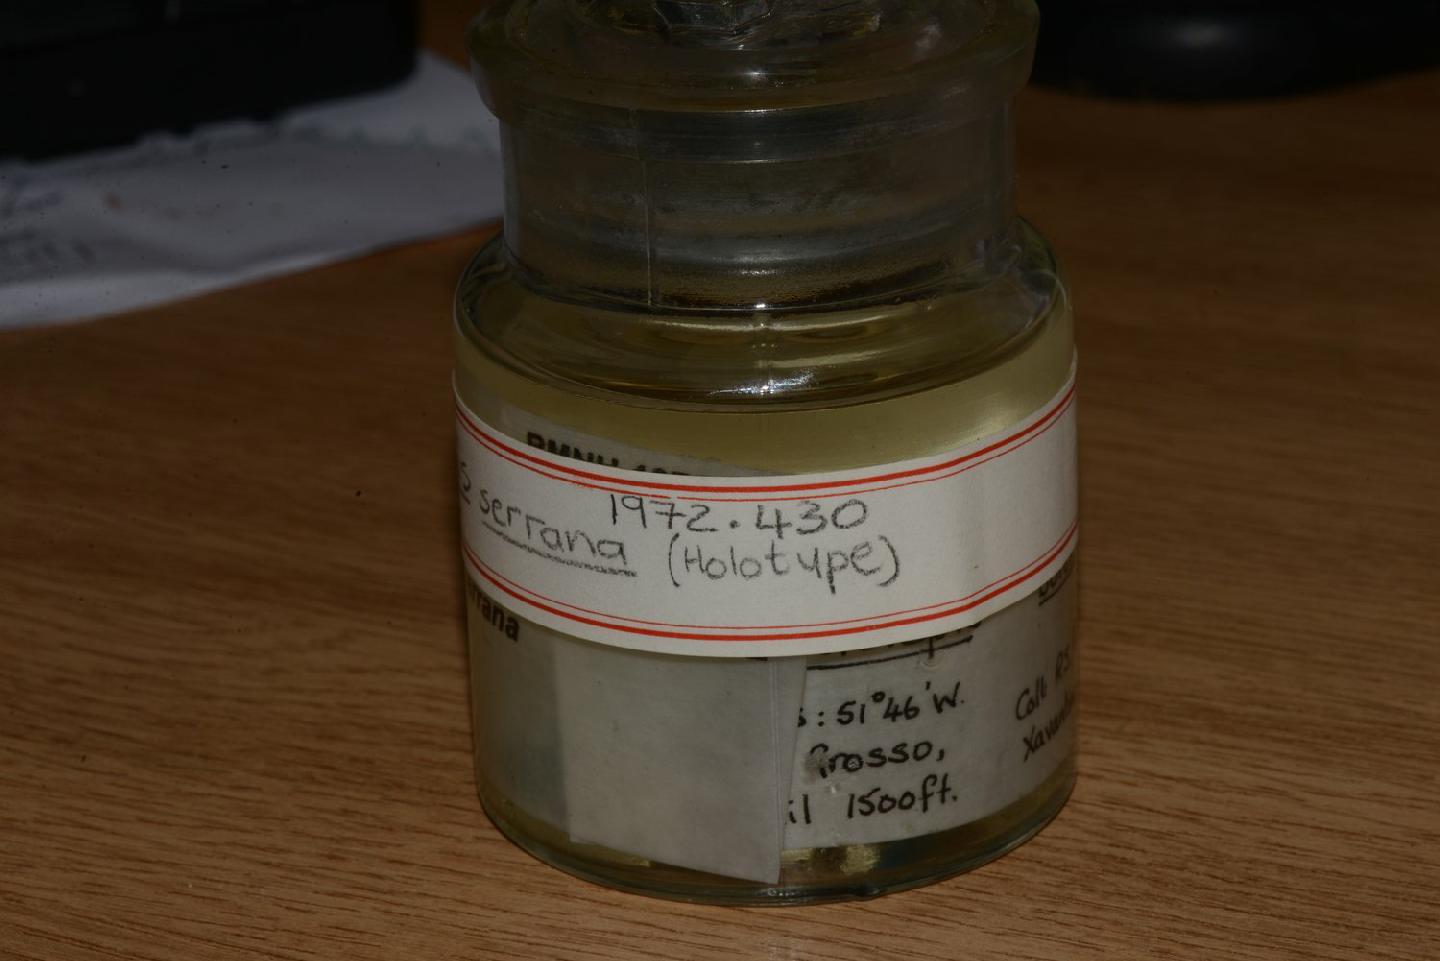 BMNH 197
1972.430
serrana (Holotype)
rrana
s: 51°46'W.
Grosso,
il 1500ft.
Coll. R.S.